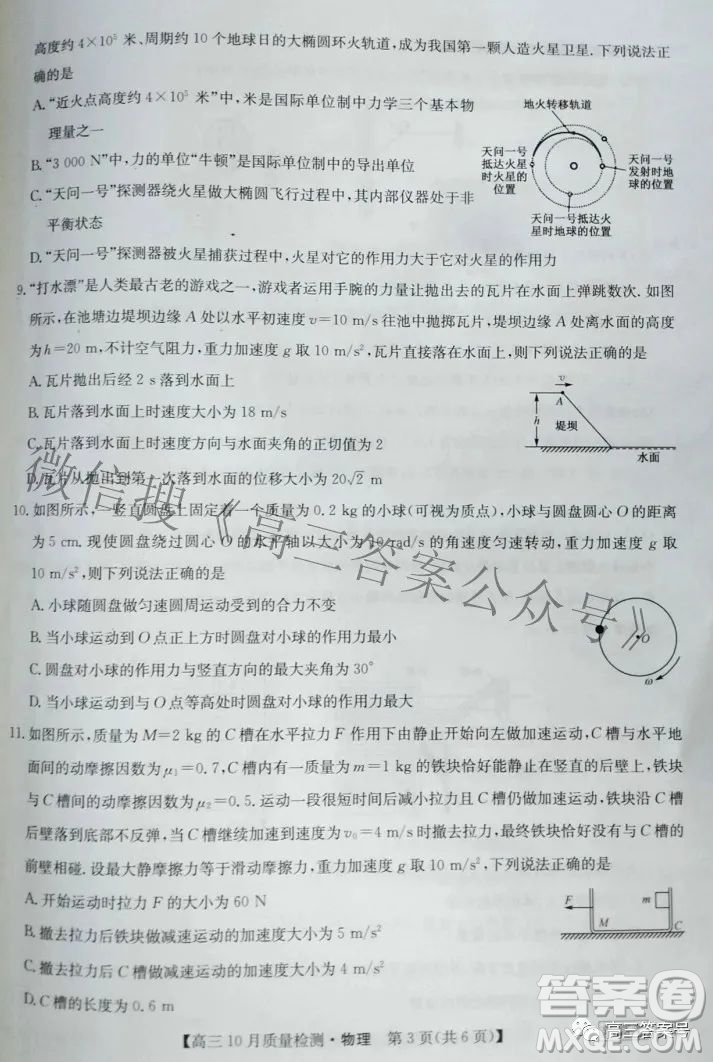 高度约 4×10⁵ 米、周期约 10 个地球日的大椭圆环火轨道,成为我国第一颗人造火星卫星. 下列说法正
确的是
A. “近火点高度约 4×10⁵ 米”中,米是国际单位制中力学三个基本物
理量之一
B. “3 000 N”中,力的单位“牛顿”是国际单位制中的导出单位
C. “天问一号”探测器绕火星做大椭圆飞行过程中,其内部仪器处于非
平衡状态
D. “天问一号”探测器被火星捕获过程中,火星对它的作用力大于它对火星的作用力
地火转移轨道
天问一号
抵达火星
时火星的
位置
天问一号
发射时地
球的位置
天问一号抵达火
星时地球的位置
9. “打水漂”是人类最古老的游戏之一,游戏者运用手腕的力量让抛出去的瓦片在水面上弹跳数次. 如图
所示,在池塘边堤坝边缘 A 处以水平初速度 v=10 m/s 往池中抛掷瓦片,堤坝边缘 A 处离水面的高度
为 h=20 m,不计空气阻力,重力加速度 g 取 10 m/s²,瓦片直接落在水面上. 则下列说法正确的是
A. 瓦片抛出后经 2 s 落到水面上
B. 瓦片落到水面上时速度大小为 18 m/s
C. 瓦片落到水面上时速度方向与水面夹角的正切值为 2
D. 瓦片从抛出到第一次落到水面的位移大小为 20√2 m
v
A
h
堤坝
水面
10. 如图所示,一竖直圆盘上固定着一个质量为 0.2 kg 的小球(可视为质点),小球与圆盘圆心 O 的距离
为 5 cm. 现使圆盘绕过圆心 O 的水平轴以大小为 10 rad/s 的角速度匀速转动,重力加速度 g 取
10 m/s²,则下列说法正确的是
A. 小球随圆盘做匀速圆周运动受到的合力不变
B. 当小球运动到 O 点正上方时圆盘对小球的作用力最小
C. 圆盘对小球的作用力与竖直方向的最大夹角为 30°
D. 当小球运动到与 O 点等高处时圆盘对小球的作用力最大
O
ω
11. 如图所示,质量为 M=2 kg 的 C 槽在水平拉力 F 作用下由静止开始向左做加速运动,C 槽与水平地
面间的动摩擦因数为 μ₁=0.7,C 槽内质量为 m=1 kg 的铁块恰好能静止在竖直的后壁上,铁块
与 C 槽间的动摩擦因数为 μ₂=0.5. 运动一段很短时间后减小拉力且 C 槽仍做加速运动,铁块沿 C 槽
后壁落到底部不反弹,当 C 槽继续加速到速度为 v₀=4 m/s 时撤去拉力,最终铁块恰好没有与 C 槽的
前壁相碰. 设最大静摩擦力等于滑动摩擦力,重力加速度 g 取 10 m/s²,下列说法正确的是
A. 开始运动时拉力 F 的大小为 60 N
B. 撤去拉力后铁块做减速运动的加速度大小为 5 m/s²
C. 撤去拉力后 C 槽做减速运动的加速度大小为 4 m/s²
D. C 槽的长度为 0.6 m
F
m
M
C
【高三 10 月质量检测·物理 第 3 页(共 6 页)】
微信搜《高三答案公众号》
答案圈
高三答案号
MXQE.COM